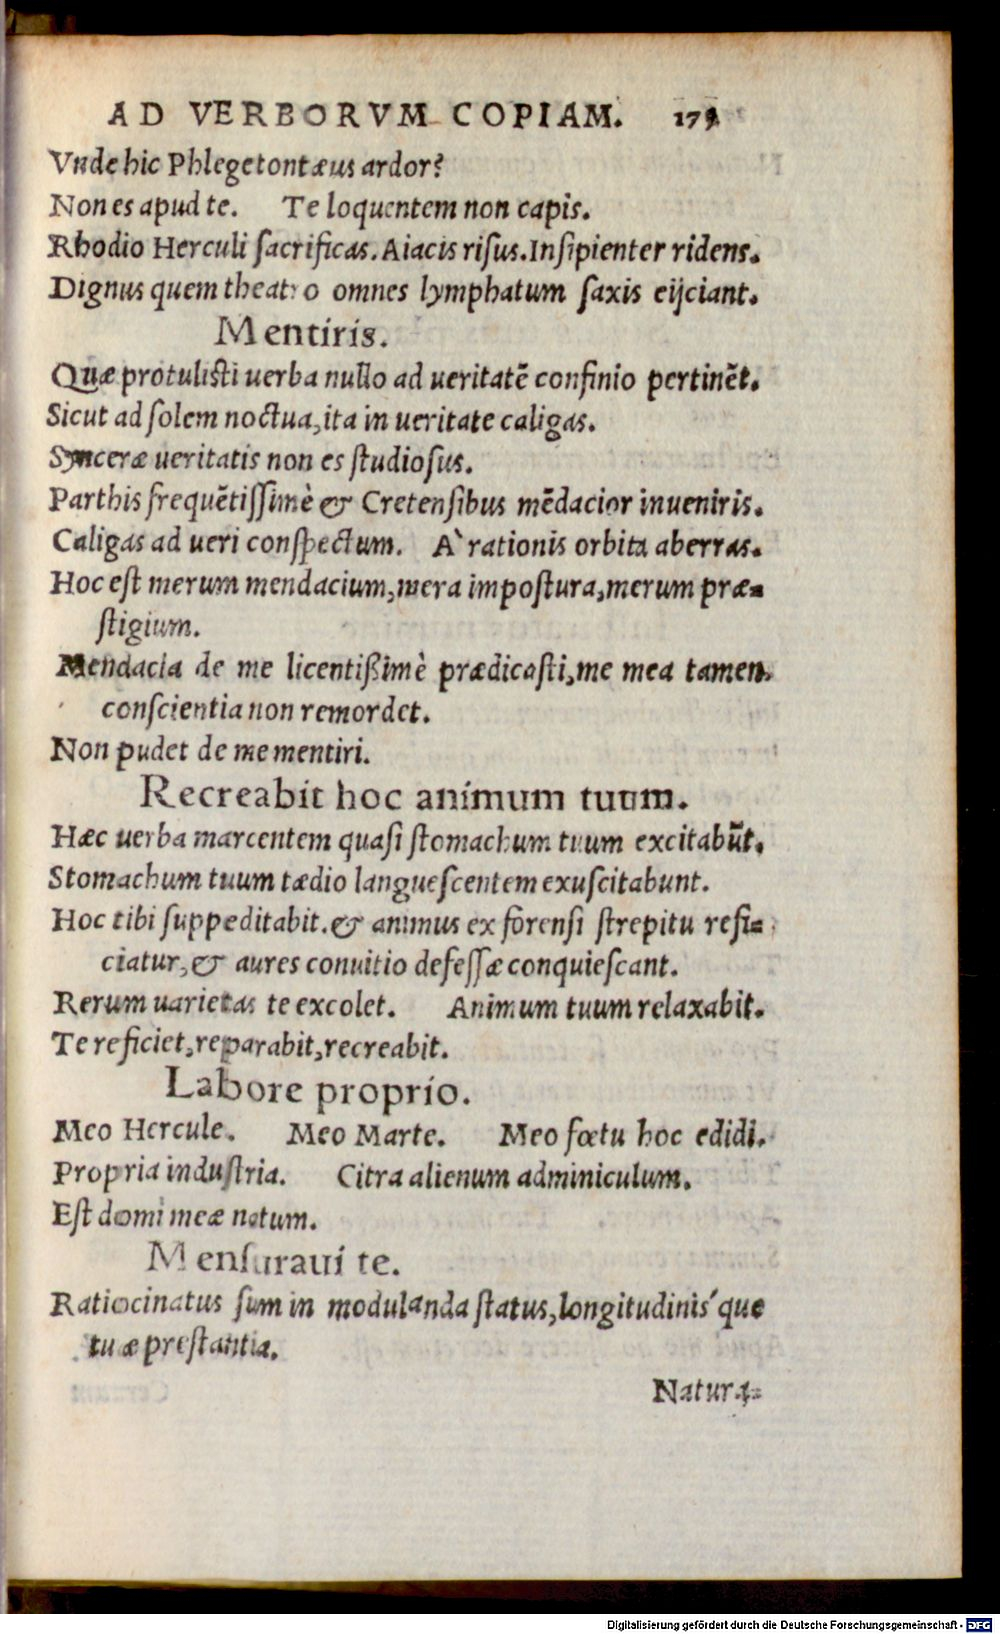 AD VERBORVM COPIAM. 179
Vnde hic Phlegetontæus ardor?
Non es apud te. Te loquentem non capis.
Rhodio Herculi ſacrificas. Aiacis riſus. Inſipienter ridens.
Dignus quem theatro omnes lymphatum ſaxis eijciant.
Mentiris.
Quæ protuliſti uerba nullo ad ueritatē confinio pertinēt.
Sicut ad ſolem noctua, ita in ueritate caligas.
Synceræ ueritatis non es ſtudioſus.
Parthis frequētiſſimè & Cretenſibus mēdacior inueniris.
Caligas ad ueri conſpectum. A` rationis orbita aberras.
Hoc eſt merum mendacium, mera impoſtura, merum præ-
ſtigium.
Mendacia de me licentißimè prædicaſti, me mea tamen
conſcientia non remordet.
Non pudet de me mentiri.
Recreabit hoc animum tuum.
Hæc uerba marcentem quaſi ſtomachum tuum excitabūt.
Stomachum tuum tædio langueſcentem exuſcitabunt.
Hoc tibi ſuppeditabit. & animus ex forenſi ſtrepitu refi-
ciatur, & aures conuitio defeſſæ conquieſcant.
Rerum uarietas te excolet. Animum tuum relaxabit.
Te reficiet, reparabit, recreabit.
Labore proprio.
Meo Hercule. Meo Marte. Meo fœtu hoc edidi.
Propria induſtria. Citra alienum adminiculum.
Eſt domi meæ natum.
Menſuraui te.
Ratiocinatus ſum in modulanda ſtatus, longitudinis´que
tuæ preſtantia.
Naturæ-
Digitalisierung gefördert durch die Deutsche Forschungsgemeinschaft - DFG